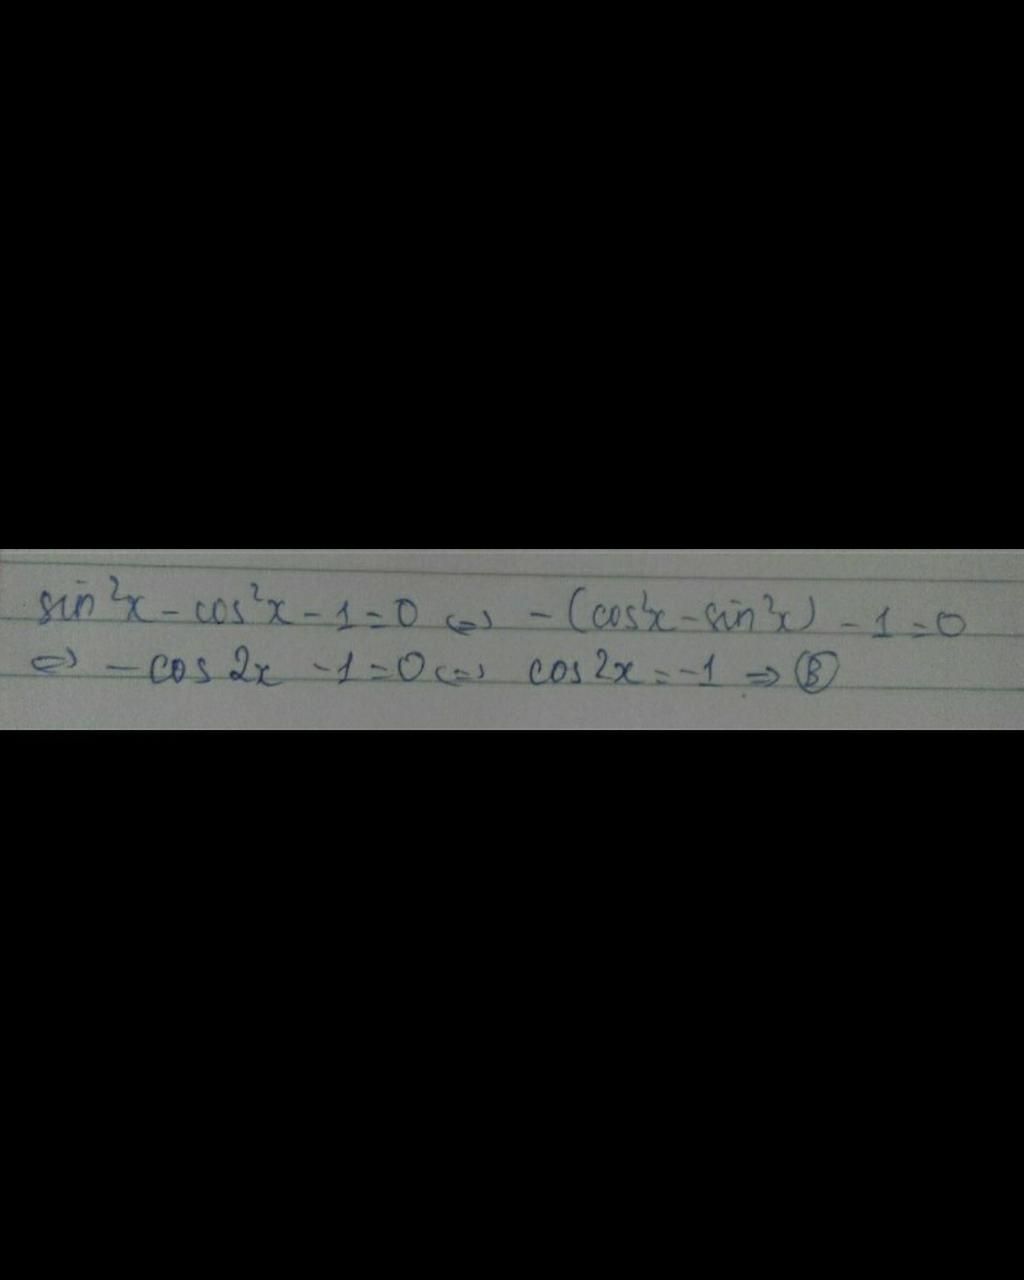 sin²x - cos²x - 1 = 0 <=> - (cos²x - sin²x) - 1 = 0
<=> - cos 2x - 1 = 0 <=> cos 2x = -1 => Ⓑ